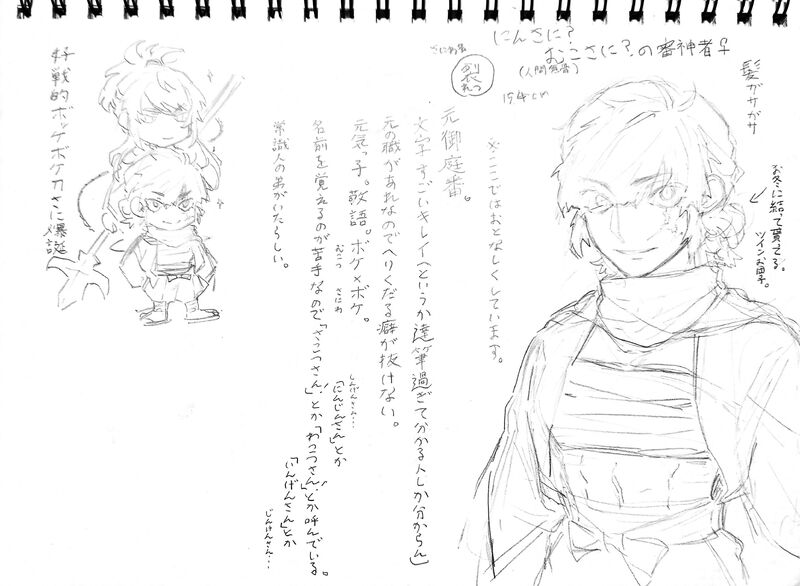 にんさに?
むこさに?の審神者♀
(人間無骨)
さにわ名
裂
れつ
154cm
髪ガサガサ
お冬に結て貰てる。
ツインお団子。
※ここではおとなしくしています。
元御庭番。
文字すごいキレイ(というか達筆過ぎて分かる人しか分からん)
元の職があれなのでへりくだる癖が抜けない。
元気っ子。敬語。ボケ×ボケ。
むこつ さにわ
名前を覚えるのが苦手なので「さこつさん!」とか「わっこつさん!」とか呼んでいる。
「にんじんさん」とか
しんげんさん…
「にんげんさん」とか
じんけんさん…
常識人の弟がいたらしい。
好戦的ボッケボケ刀さに爆誕